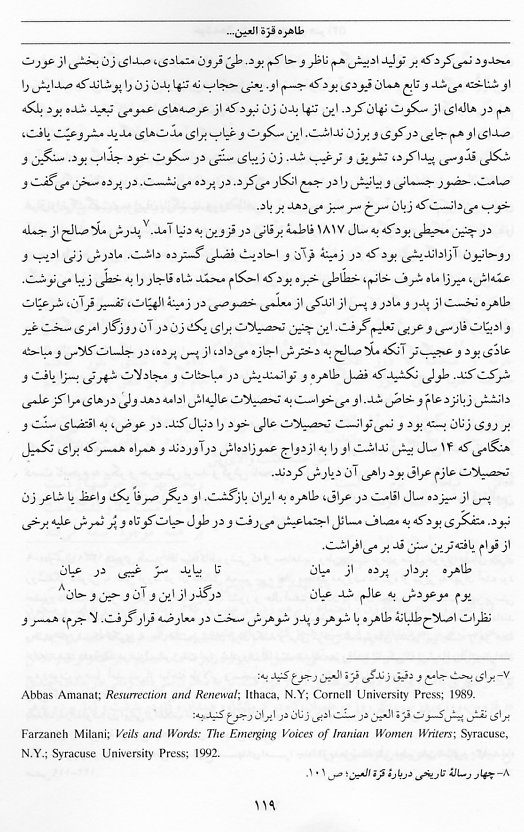 طاهره قرّة العین...
محدود نمی‌کرد که بر تولید ادبیش هم ناظر و حاکم بود. طیّ قرون متمادی، صدای زن بخشی از عورت
او شناخته می‌شد و تابع همان قیودی بود که جسم او. یعنی حجاب نه تنها بدن زن را پوشاند که صدایش را
هم در هاله‌ای از سکوت نهان کرد. این تنها بدن زن نبود که از عرصه‌های عمومی تبعید شده بود بلکه
صدای او هم جایی در کوی و برزن نداشت. این سکوت و غیاب برای مدّت‌های مدید مشروعیّت یافت،
شکلی قدّوسی پیدا کرد، تشویق و ترغیب شد. زن زیبای سنّتی در سکوت خود جذّاب بود. سنگین و
صامت. حضور جسمانی و بیانیش را در جمع انکار می‌کرد. در پرده می‌نشست. در پرده سخن می‌گفت و
خوب می‌دانست که زبان سرخ سر سبز می‌دهد بر باد.
در چنین محیطی بود که به سال ۱۸۱۷ فاطمهٔ برقانی در قزوین به دنیا آمد.۷ پدرش ملّا صالح از جمله
روحانیون آزاداندیشی بود که در زمینهٔ قرآن و احادیث فضلی گسترده داشت. مادرش زنی ادیب و
عمّه‌اش، میرزا ماه شرف خانم، خطّاطی خبره بود که احکام محمّد شاه قاجار را به خطّی زیبا می‌نوشت.
طاهره نخست از پدر و مادر و پس از اندکی از معلّمی خصوصی در زمینهٔ الهیّات، تفسیر قرآن، شرعیّات
و ادبیّات فارسی و عربی تعلیم گرفت. این چنین تحصیلات برای یك زن در آن روزگار امری سخت غیر
عادّی بود و عجیب‌تر آنکه ملّا صالح به دخترش اجازه می‌داد، از پس پرده، در جلسات کلاس و مباحثه
شرکت کند. طولی نکشید که فضل طاهره و توانمندیش در مباحثات و مجادلات شهرتی بسزا یافت و
دانشش زبانزد عامّ و خاصّ شد. او می‌خواست به تحصیلات عالیه‌اش ادامه دهد ولی درهای مراکز علمی
بر روی زنان بسته بود و نمی‌توانست تحصیلات عالی خود را دنبال کند. در عوض، به اقتضای سنّت و
هنگامی که ۱۴ سال بیش نداشت او را به ازدواج عموزاده‌اش درآوردند و همراه همسر که برای تکمیل
تحصیلات عازم عراق بود راهی آن دیارش کردند.
پس از سیزده سال اقامت در عراق، طاهره به ایران بازگشت. او دیگر صرفاً یك واعظ یا شاعر زن
نبود. متفکّری بود که به مصاف مسائل اجتماعیش می‌رفت و در طول حیات کوتاه و پُر ثمرش علیه برخی
از قوام یافته‌ترین سنن قد بر می‌افراشت.
طاهره بردار پرده از میان تا بیاید سرّ غیبی در عیان
یوم موعودش به عالم شد عیان درگذار از این و آن و حین و حان۸
نظرات اصلاح‌طلبانهٔ طاهره با شوهر و پدر شوهرش سخت در معارضه قرار گرفت. لا جرم، همسر و
۷- برای بحث جامع و دقیق زندگی قرّة العین رجوع کنید به:
Abbas Amanat; Resurrection and Renewal; Ithaca, N.Y; Cornell University Press; 1989.
برای نقش پیش‌کسوت قرّة العین در سنّت ادبی زنان در ایران رجوع کنید به:
Farzaneh Milani; Veils and Words: The Emerging Voices of Iranian Women Writers; Syracuse,
N.Y.; Syracuse University Press; 1992.
۸- چهار رسالهٔ تاریخی دربارهٔ قرّة العین؛ ص ۱۰۱.
۱۱۹